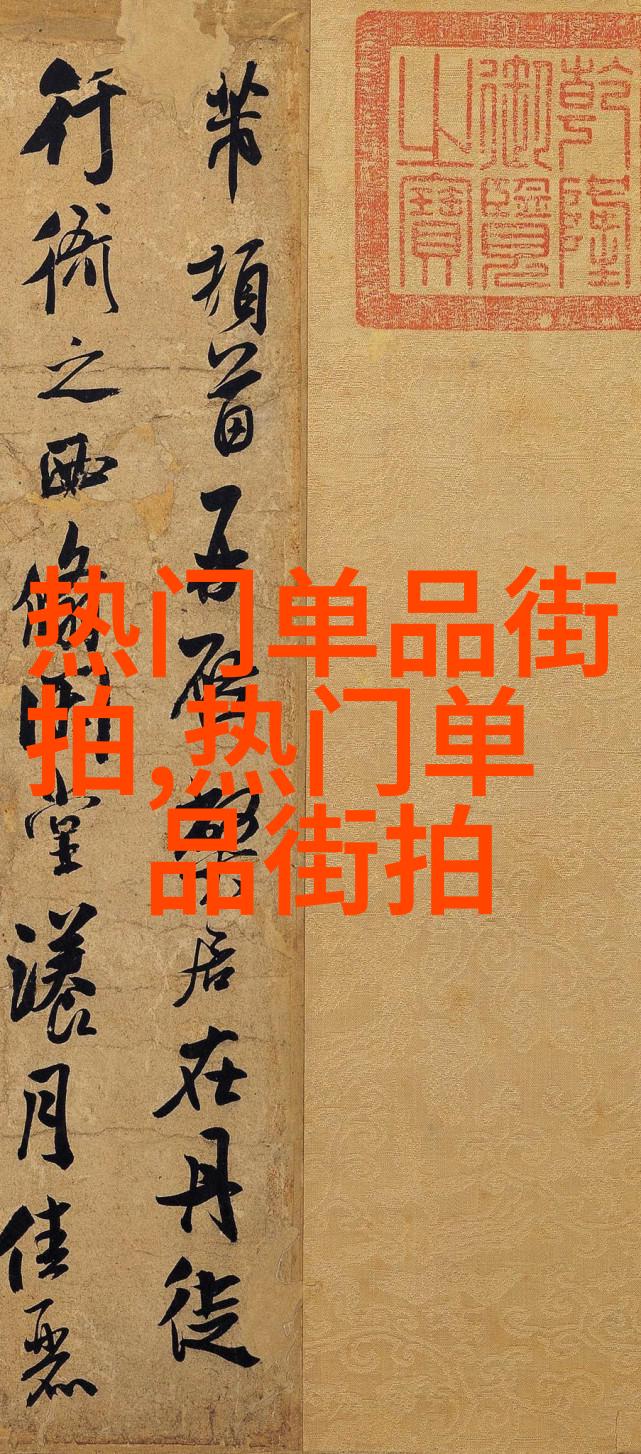 乾隆
御覽
之寶
芾頓首再啟弊居在丹徒
行衙之西翛閒堂漾月佳麗
热门单品街
拍,热门单
品街拍